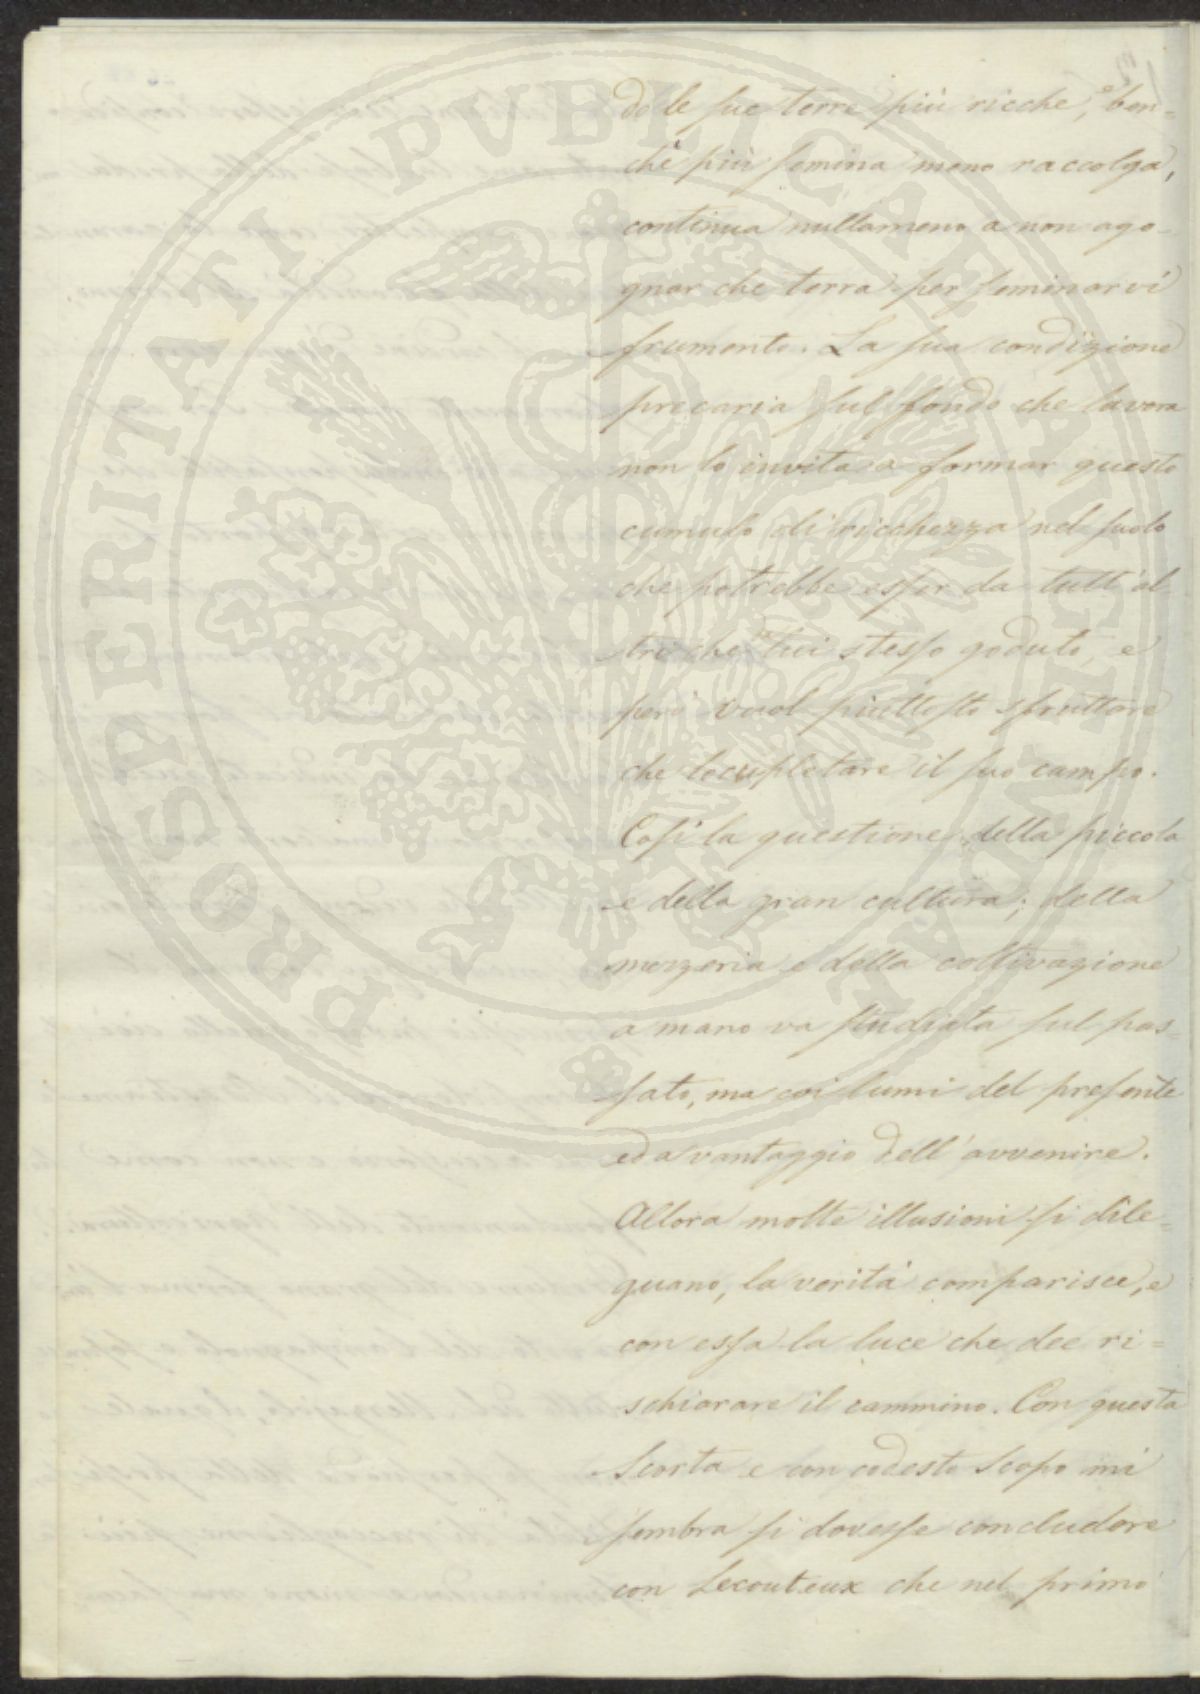 PROSPERITATI PUBLICAE AUGENDAE
do le sue terre più ricche, e ben-
chè più semina meno raccolga,
continua nullameno a non ago-
gnar che terra per seminarvi
frumento. La sua condizione
precaria sul fondo che lavora
non lo invita a formar questo
cumulo di ricchezza nel suolo
che potrebbe esser da tutt'al
tri che lui stesso goduto, e
però vuol piuttosto sfruttare
che locupletare il suo campo.
Così la questione della piccola
e della gran cultura; della
mezzeria e della coltivazione
a mano va studiata sul pas=
sato, ma coi lumi del presente
ed a vantaggio dell'avvenire.
Allora molte illusioni si dile=
guano, la verità comparisce, e
con essa la luce che dee ri=
schiarare il cammino. Con questa
scorta e con codesto scopo mi
sembra si dovesse concludere
con Lecouteux che nel primo